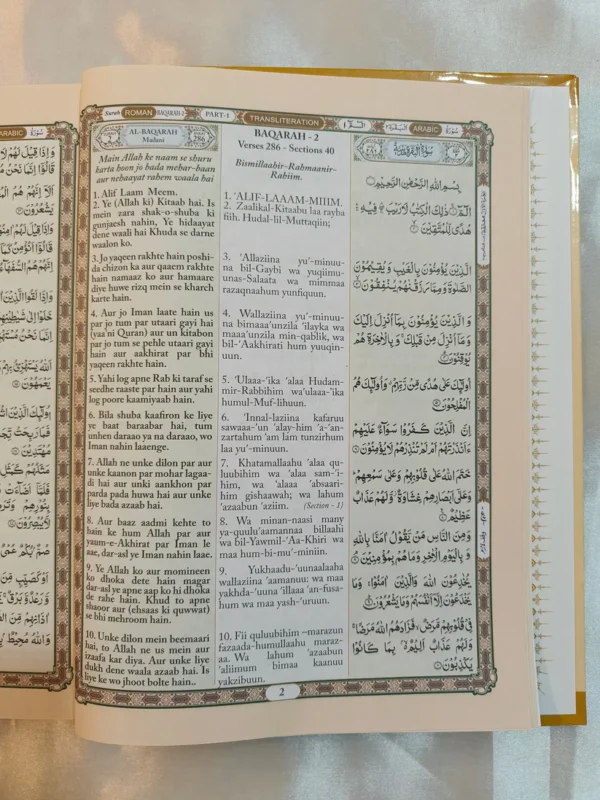 ARABIC
وَإِذَا قِيلَ لَهُمْ لَا
Surah ROMAN BAQARAH-2 PART-1 TRANSLITERATION ARABIC
AL-BAQARAH
Madani
286
Main Allah ke naam se shuru
karta hoon jo bada mehar-baan
aur nehaayat rahem waala hai
1. Alif Laam Meem.
2. Ye (Allah ki) Kitaab hai. Is
mein zara shak-o-shuba ki
gunjaesh nahin, Ye hidaayat
dene waali hai Khuda se darne
waalon ko.
3. Jo yaqeen rakhte hain poshi-
da chizon ka aur qaaem rakhte
hain namaaz ko aur hamaare
diye huwe rizq mein se kharch
karte hain.
4. Aur jo Imaan laate hain us
par jo tum par utaari gayi hai
(yaa'ni Quran) aur un kitabon
par jo tum se pehle utaari gayi
hain aur aakhirat par bhi
yaqeen rakhte hain.
5. Yahi log apne Rab ki taraf se
seedhe raaste par hain aur yahi
log poore kaamiyaab hain.
6. Bila shuba kaafiron ke liye
ye baat baraabar hai, tum
unhen daraao ya na daraao, wo
Iman nahin laaenge.
7. Allah ne unke dilon par aur
unke kaanon par mohar lagaa-
di hai aur unki aankhon par
parda pada huwa hai aur unke
liye bada azaab hai.
8. Aur baaz aadmi kehte to
hain ke hum Allah par aur
yaum-e-Akhirat par Iman le
aae, dar-asl ye Iman nahin laae.
9. Ye Allah ko aur momineen
ko dhoka dete hain magar
dar-asl ye apne aap ko hi dhoka
de rahe hain. Khud to apne
shaoor aur (ehsaas ki quwwat)
se bhi mehroom hain.
10. Unke dilon mein beemaari
hai, to Allah ne us mein aur
izaafa kar diya. Aur unke liye
dukh dene waala azaab hai. Is
liye ke wo jhoot bolte hain..
BAQARAH - 2
Verses 286 - Sections 40
Bismillaahir-Rahmaanir-
Rahiim.
1. 'ALIF-LAAAM-MIIIM.
2. Zaalikal-Kitaabu laa rayba
fiih. Hudal-lil-Muttaqiin;
3. 'Allaziina yu'-minuu-
na bil-Gaybi wa yuqiimu-
unas-Salaata wa mimmaa
razaqnaahum yunfiquun.
4. Wallaziina yu'-minuu-
na bimaaa'unzila 'ilayka wa
maaa'unzila min-qablik, wa
bil-'Aakhirati hum yuuqin-
uun.
5. 'Ulaaa-'ika 'alaa Hudam-
mir-Rabbihim wa'ulaaa-'ika
humul-Muf-lihuun.
6. 'Innal-laziina kafaruu
sawaaa-'un 'alay-him 'a-'an-
zartahum 'am lam tunzirhum
laa yu'-minuun.
7. Khatamallaahu 'alaa qu-
luubihim wa 'alaa sam-'i-
him, wa 'alaaa 'absaari-
him gishaawah; wa lahum
'azaabun 'aziim. (Section - 1)
8. Wa minan-naasi many
ya-quulu'aamannaa billaahi
wa bil-Yawmil-'Aa-Khiri wa
maa hum-bi-mu'-miniin.
9. Yukhaadu-'uunaalaaha
wallaziina 'aamanuu: wa maa
yakhda-'uuna 'illaaa 'an-fusa-
hum wa maa yash-'uruun.
10. Fii quluubihim –marazun
fazaada-humullaahu maraz-
aa. Wa lahum 'azaabun
'aliimum bimaa kaanuu
yakzibuun.
بِسْمِ اللهِ الرَّحْمٰنِ الرَّحِيْمِ
الٓمّٓ ذٰلِكَ الْكِتٰبُ لَا رَيْبَ فِيْهِ
هُدًى لِّلْمُتَّقِيْنَ
الَّذِيْنَ يُؤْمِنُوْنَ بِالْغَيْبِ وَيُقِيْمُوْنَ
الصَّلٰوةَ وَمِمَّا رَزَقْنٰهُمْ يُنْفِقُوْنَ
وَ الَّذِيْنَ يُؤْمِنُوْنَ بِمَآ اُنْزِلَ اِلَيْكَ
وَمَآ اُنْزِلَ مِنْ قَبْلِكَ وَ بِالْاٰخِرَةِ هُمْ
يُوْقِنُوْنَ
اُولٰٓئِكَ عَلٰى هُدًى مِّنْ رَّبِّهِمْ وَاُولٰٓئِكَ هُمُ
الْمُفْلِحُوْنَ
اِنَّ الَّذِيْنَ كَفَرُوْا سَوَآءٌ عَلَيْهِمْ
ءَاَنْذَرْتَهُمْ اَمْ لَمْ تُنْذِرْهُمْ لَا يُؤْمِنُوْنَ
خَتَمَ اللهُ عَلٰى قُلُوْبِهِمْ وَعَلٰى سَمْعِهِمْ
وَعَلٰٓى اَبْصَارِهِمْ غِشَاوَةٌ وَّلَهُمْ عَذَابٌ
عَظِيْمٌ
وَمِنَ النَّاسِ مَنْ يَّقُوْلُ اٰمَنَّا بِاللهِ
وَ بِالْيَوْمِ الْاٰخِرِ وَمَا هُمْ بِمُؤْمِنِيْنَ
يُخٰدِعُوْنَ اللهَ وَالَّذِيْنَ اٰمَنُوْا وَمَا
يَخْدَعُوْنَ اِلَّآ اَنْفُسَهُمْ وَمَا يَشْعُرُوْنَ
فِيْ قُلُوْبِهِمْ مَّرَضٌ فَزَادَهُمُ اللهُ مَرَضًا
وَلَهُمْ عَذَابٌ اَلِيْمٌ بِمَا كَانُوْا
يَكْذِبُوْنَ
2